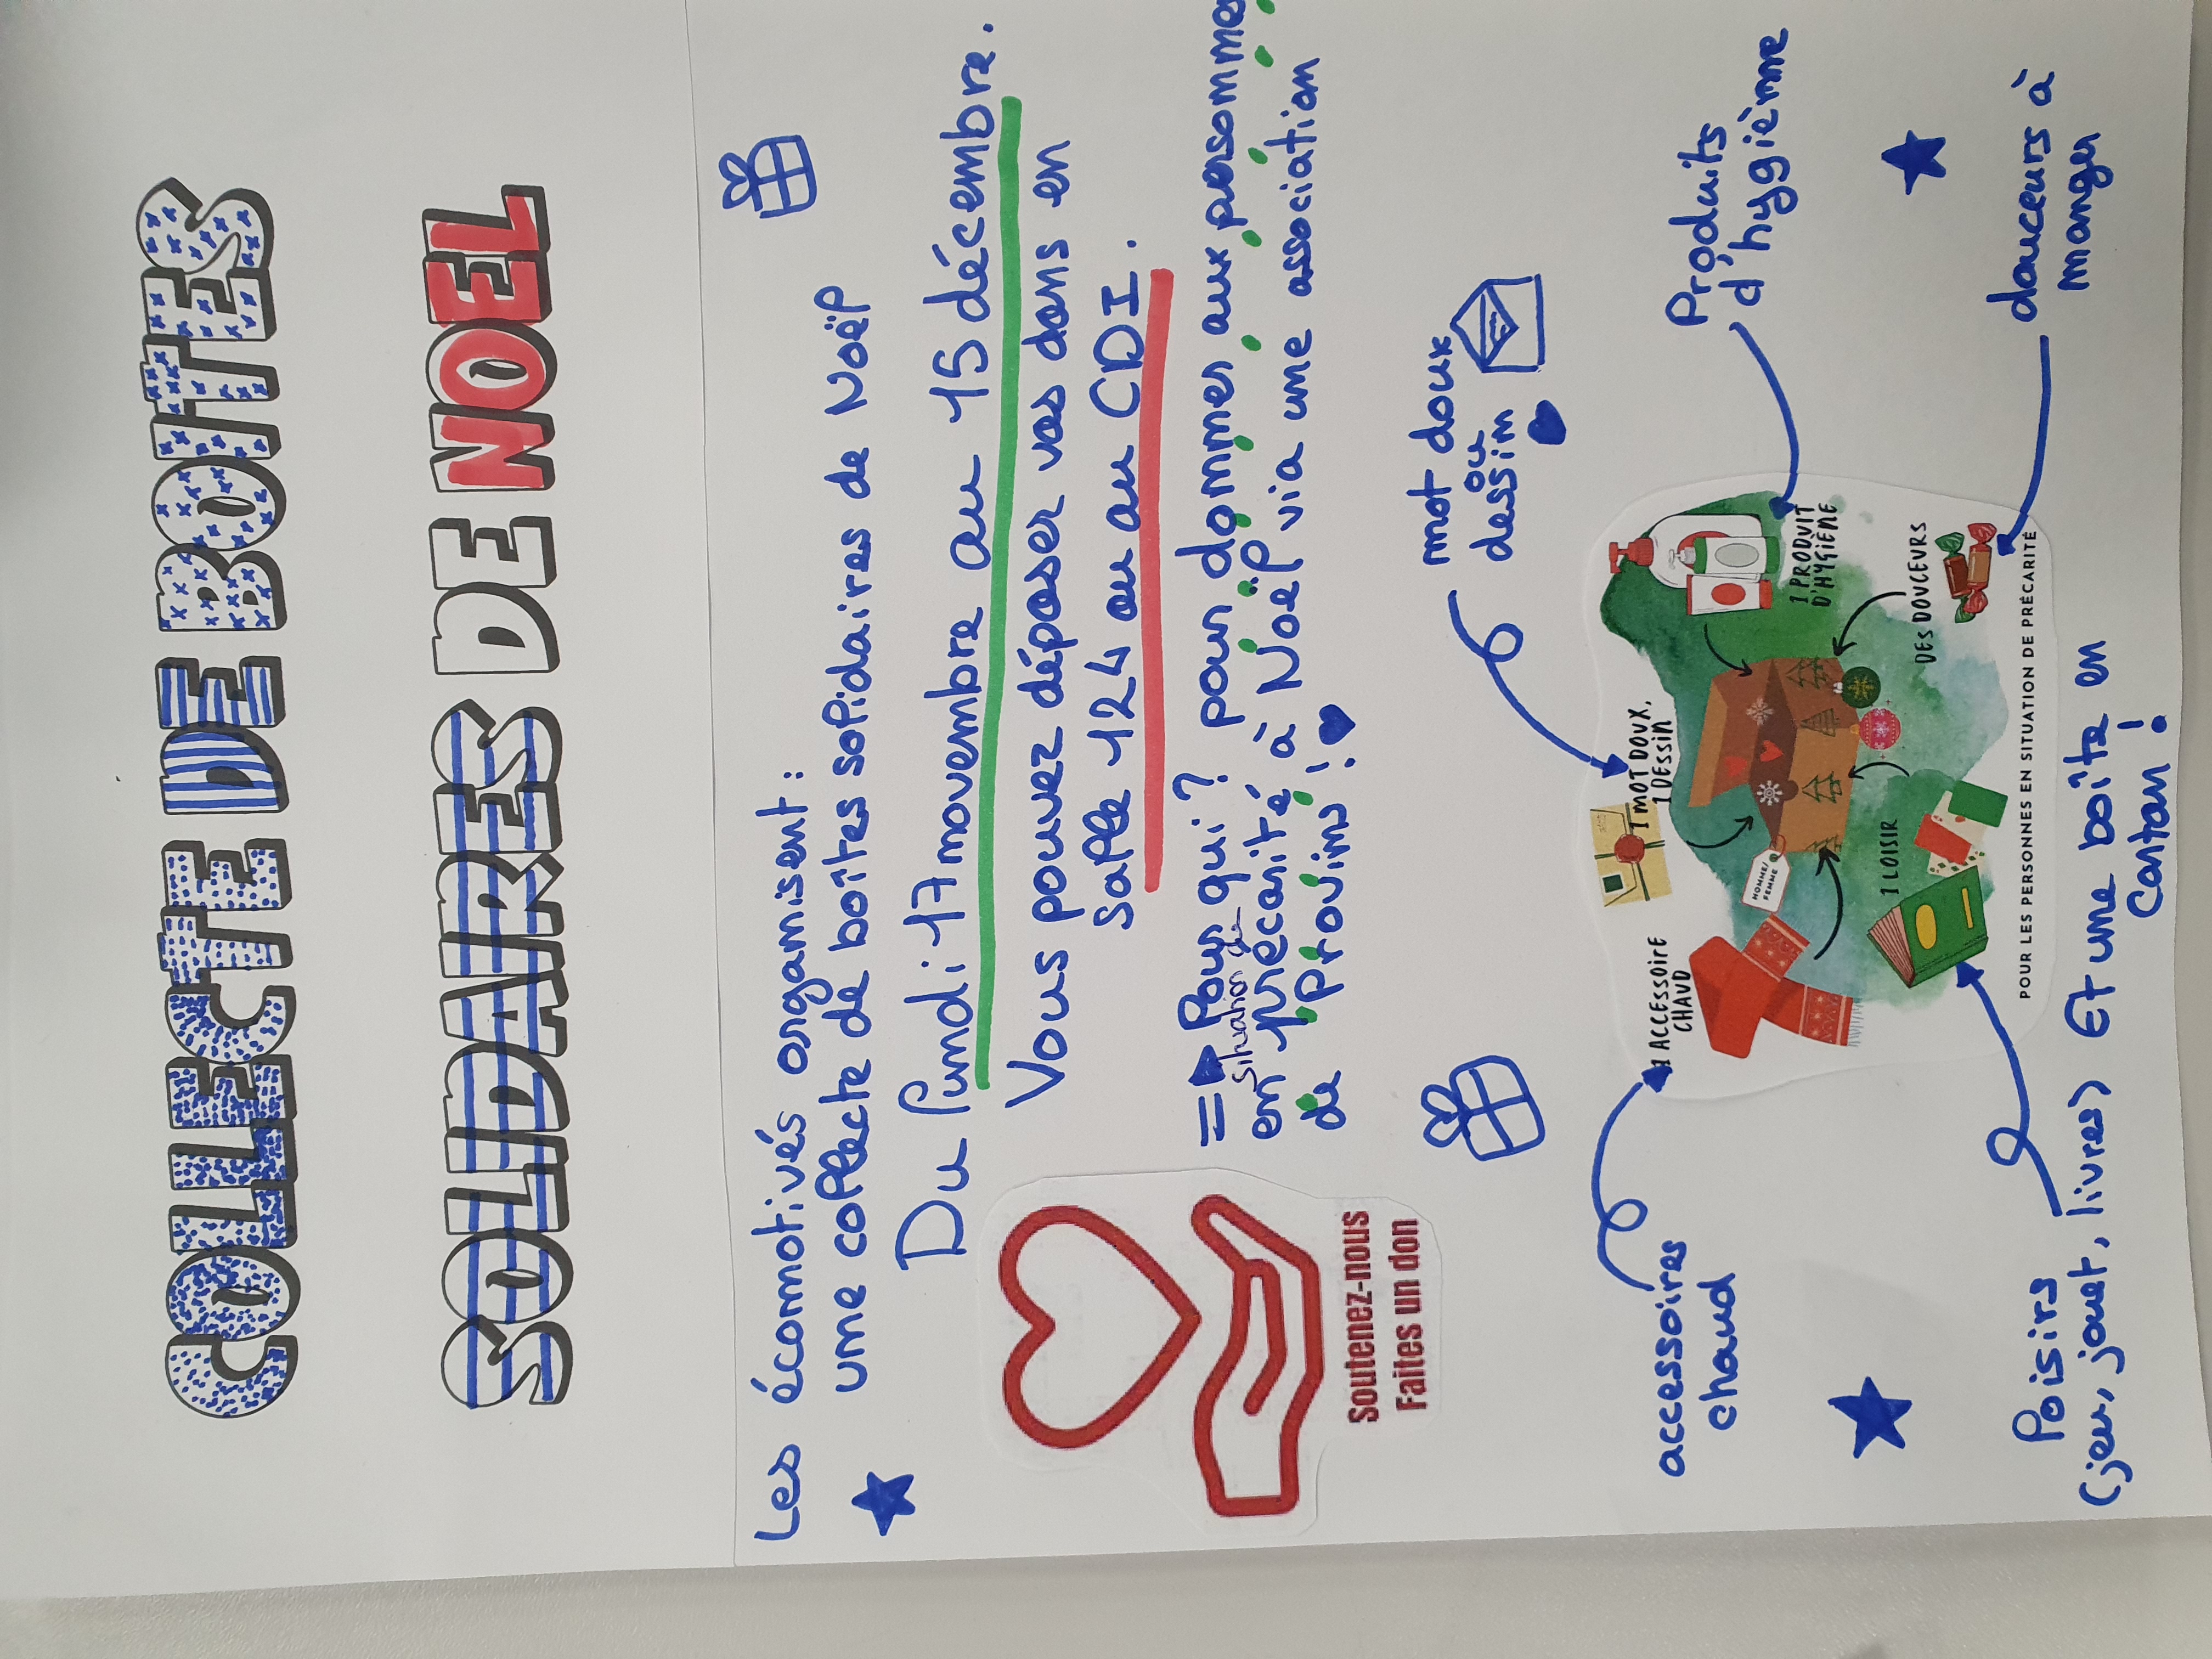 COLLECTE DE BOITES
SOLIDAIRES DE NOEL
Les écomotivés organisent :
une collecte de boîtes solidaires de Noël
Du lundi 17 novembre au 15 décembre.
Vous pouvez déposer vos dons en
salle 124 ou au CDI.
=> Pour qui ? pour donner aux personnes
situation de
en précarité à Noël via une association
de provins !
Soutenez-nous
Faites un don
mot doux
ou
dessin
Produits
d'hygiènne
accessoires
chaud
douceurs à
manger
1 MOT DOUX,
1 DESSIN
1 ACCESSOIRE
CHAUD
1 PRODUIT
D'HYGIÈNE
HOMME/
FEMME
1 LOISIR
DES DOUCEURS
POUR LES PERSONNES EN SITUATION DE PRÉCARITÉ
loisirs
(jeu, jouet, livres) Et une boîte en
Carton !